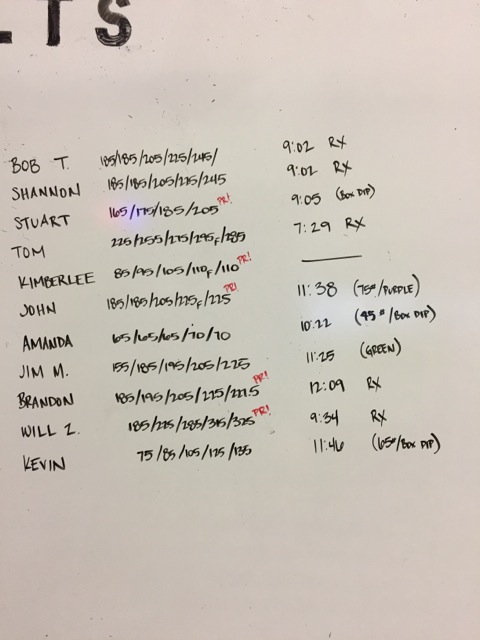 LTS
BOB T. 185/185/205/225/245/ 9:02 RX
SHANNON 185/185/205/225/245 9:02 RX
STUART 165/175/185/205 PR! 9:05 (BOX DIP)
TOM 225/255/275/295F/285 7:29 RX
KIMBERLEE 85/95/105/110F/110 PR! —
JOHN 185/185/205/225F/225 PR! 11:38 (75#/PURPLE)
AMANDA 65/65/65/70/70 10:22 (45#/BOX DIP)
JIM M. 155/185/195/205/225 11:25 (GREEN)
BRANDON 185/195/205/225/227.5 PR! 12:09 RX
WILL Z. 185/225/285/315/325 PR! 9:34 RX
KEVIN 75/85/105/125/135 11:46 (65#/BOX DIP)